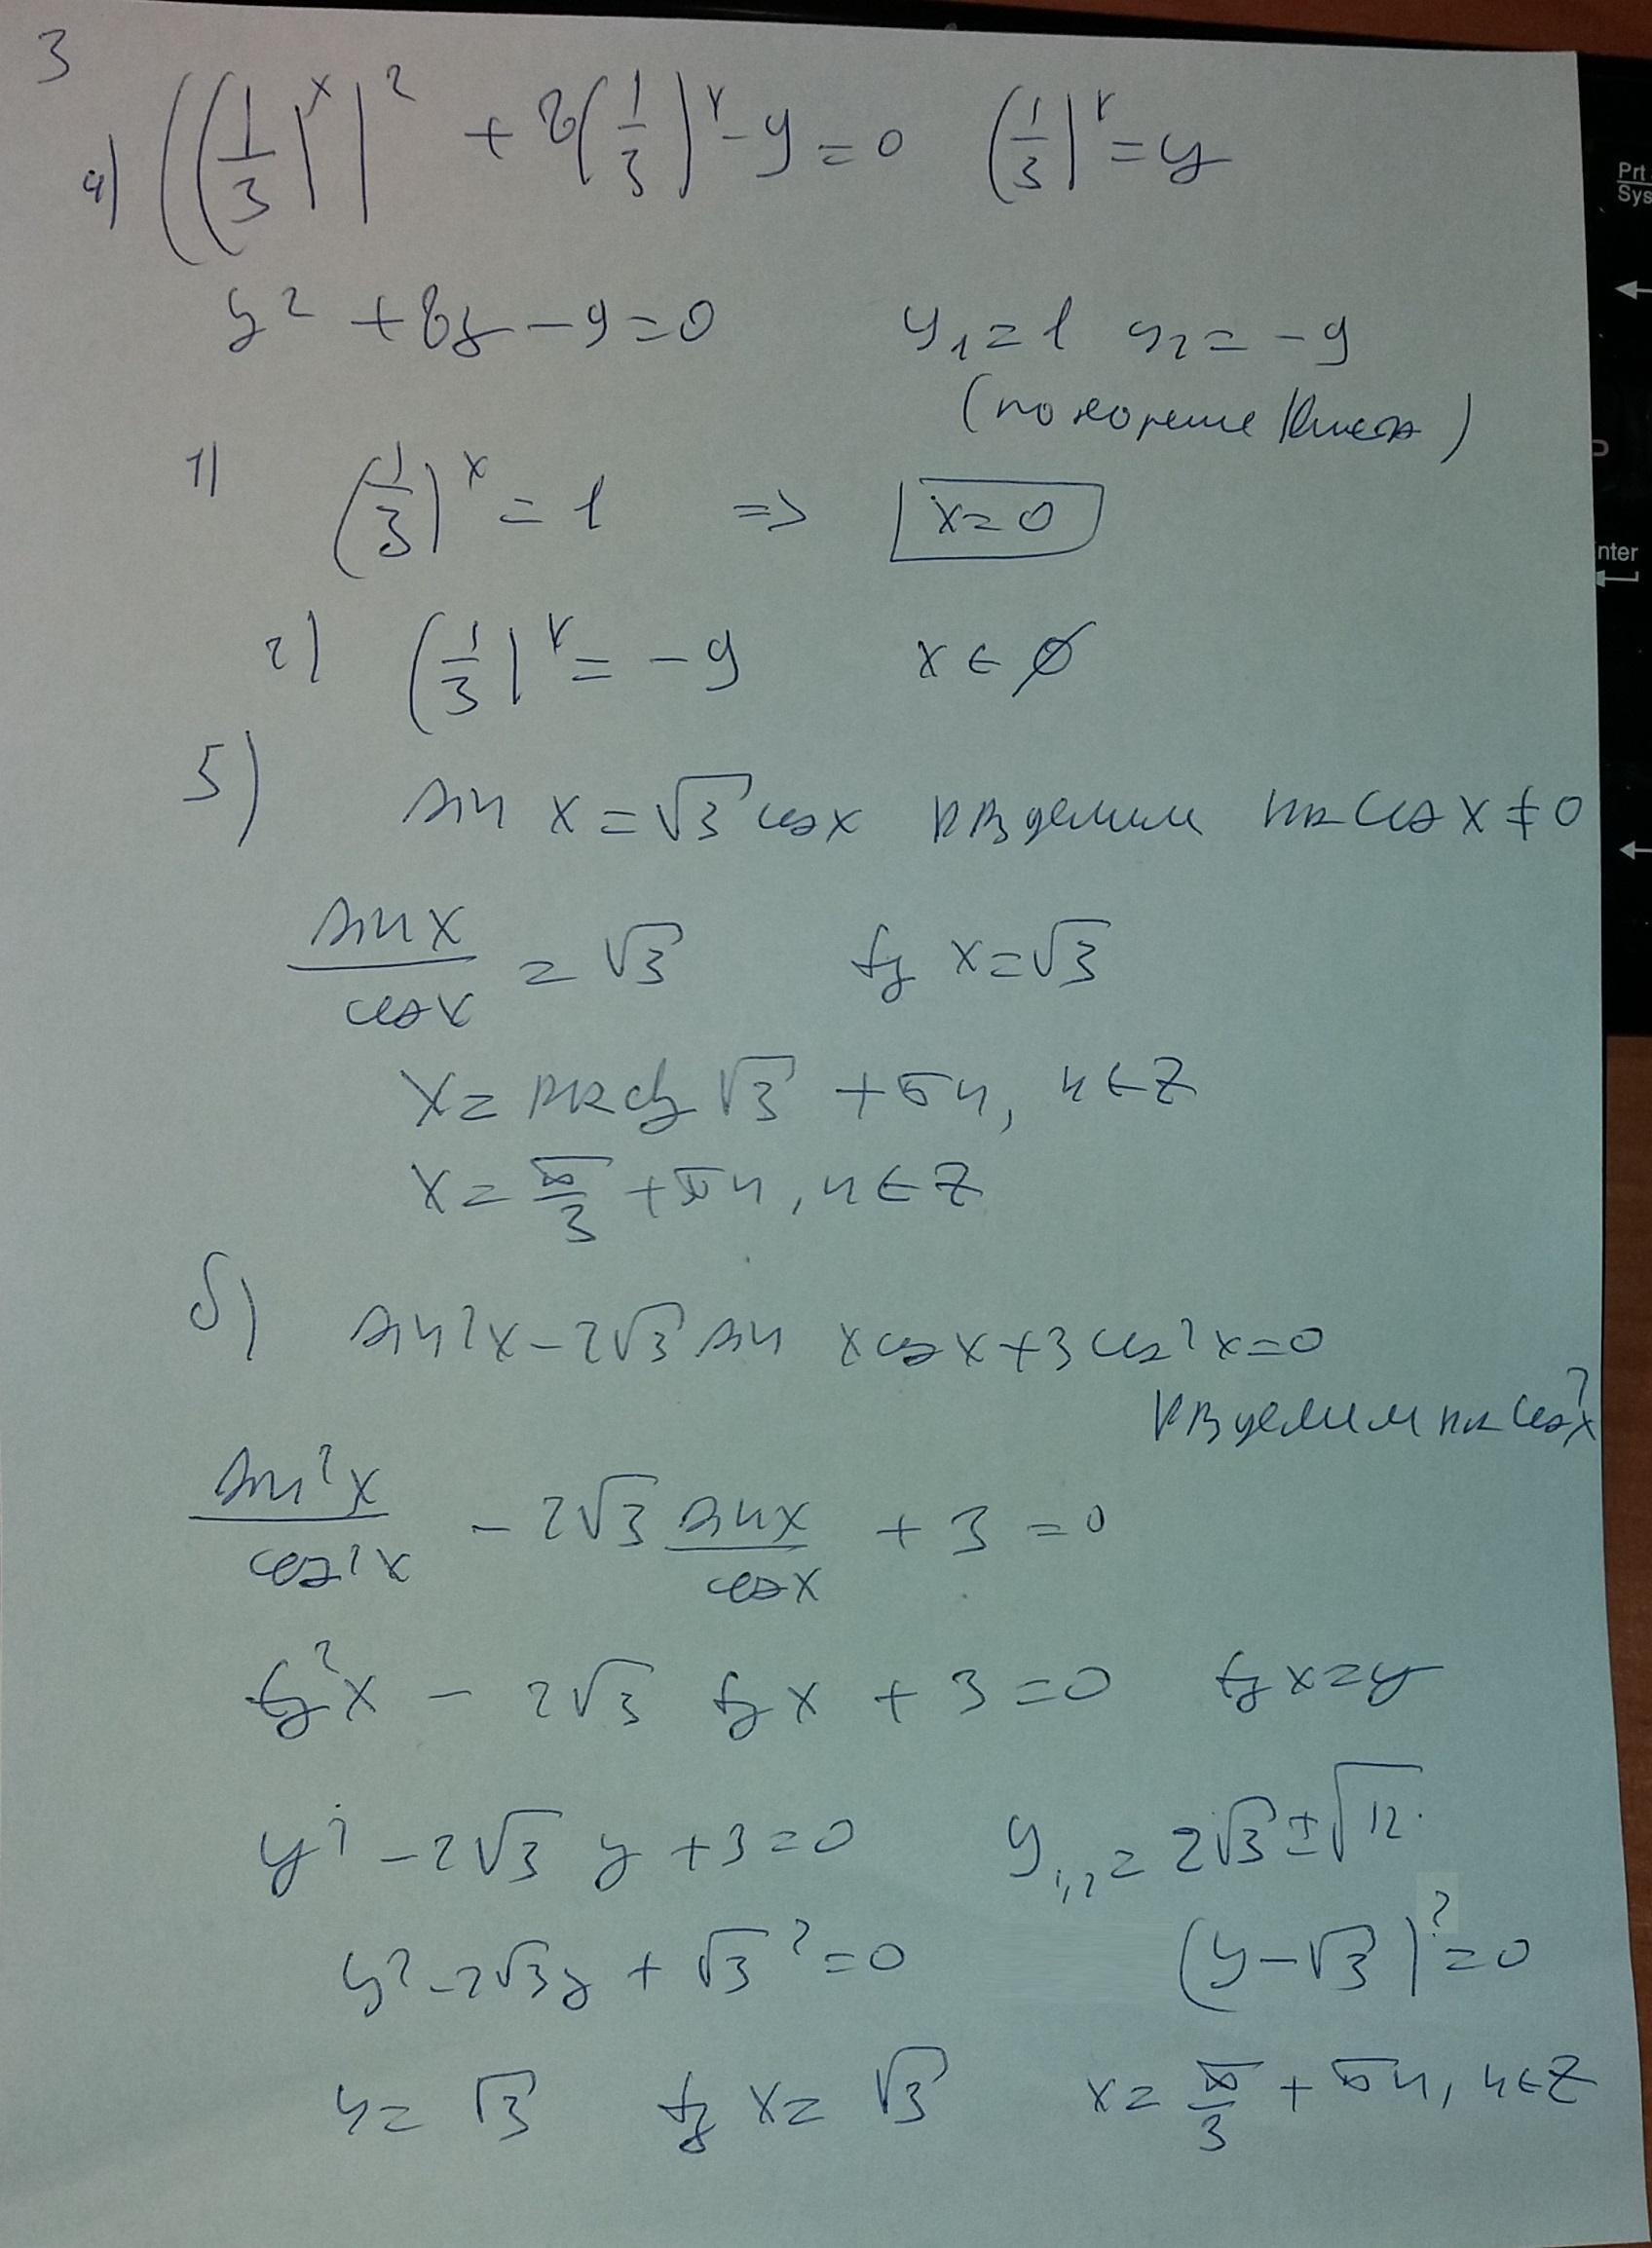 3
4) ((1/3)^x)^2 + 8(1/3)^x - 9 = 0 (1/3)^x = y
y² + 8y - 9 = 0 y₁ = 1 y₂ = -9
(по теореме Виета)
1) (1/3)^x = 1 => x = 0
2) (1/3)^x = -9 x ∈ ∅
5) sin x = √3 cos x разделим на cos x ≠ 0
sin x / cos x = √3 tg x = √3
x = arctg √3 + πn, n ∈ Z
x = π/3 + πn, n ∈ Z
б) sin²x - 2√3 sin x cos x + 3 cos²x = 0
разделим на cos²x
sin²x / cos²x - 2√3 sin x / cos x + 3 = 0
tg²x - 2√3 tg x + 3 = 0 tg x = y
y² - 2√3 y + 3 = 0 y₁,₂ = 2√3 ± √12
y² - 2√3y + √3² = 0 (y - √3)² = 0
y = √3 tg x = √3 x = π/3 + πn, n ∈ Z
Prt
Sys
nter